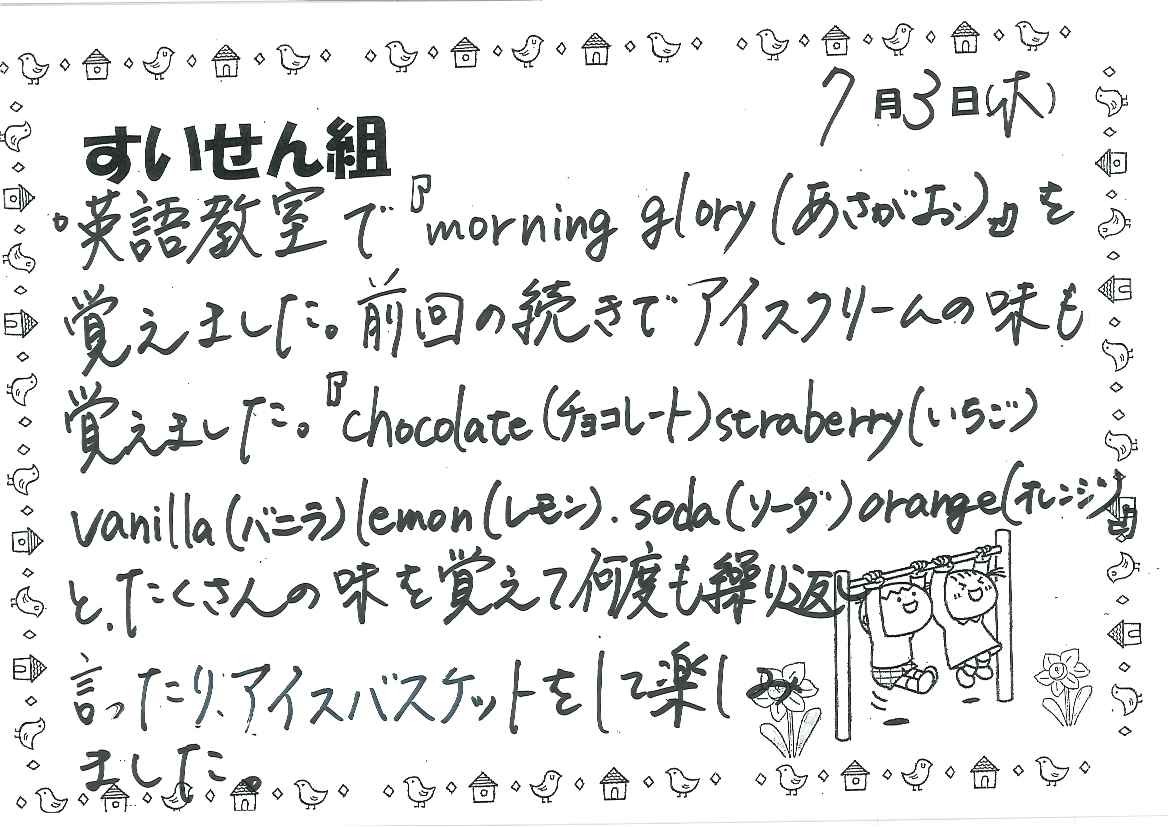 7月3日(木)
すいせん組
・英語教室で『morning glory(あさがお)』を
覚えました。前回の続きでアイスクリームの味も
覚えました。『chocolate(チョコレート)straberry(いちご)
vanilla(バニラ)lemon(レモン).soda(ソーダ)orange(オレンジ)』
と、たくさんの味を覚えて何度も繰り返し
言ったり、アイスバスケットをして楽しみ
ました。